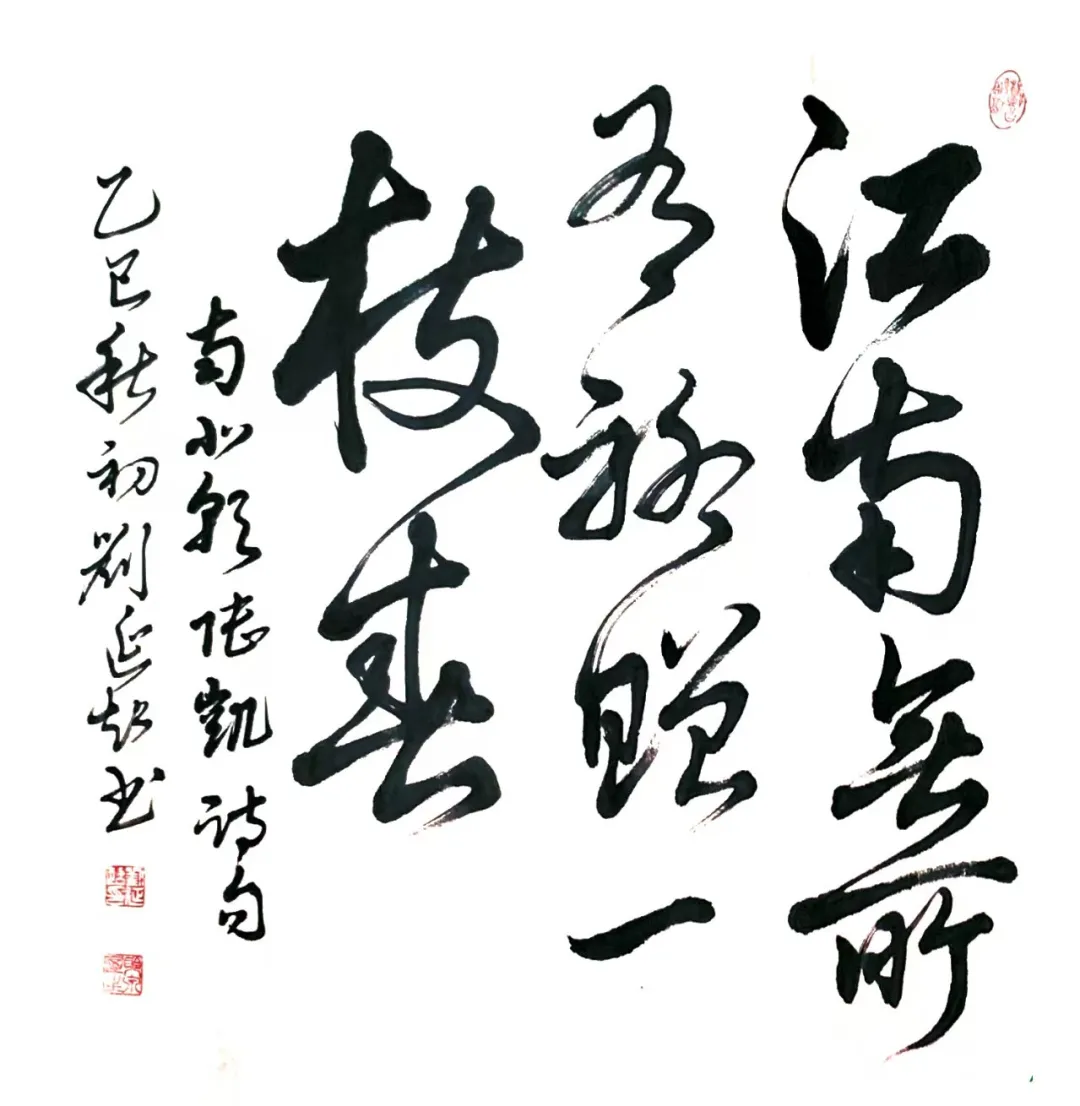 江南無所
有聊贈一
枝春
南北朝陸凱詩句
乙巳秋初劉延書